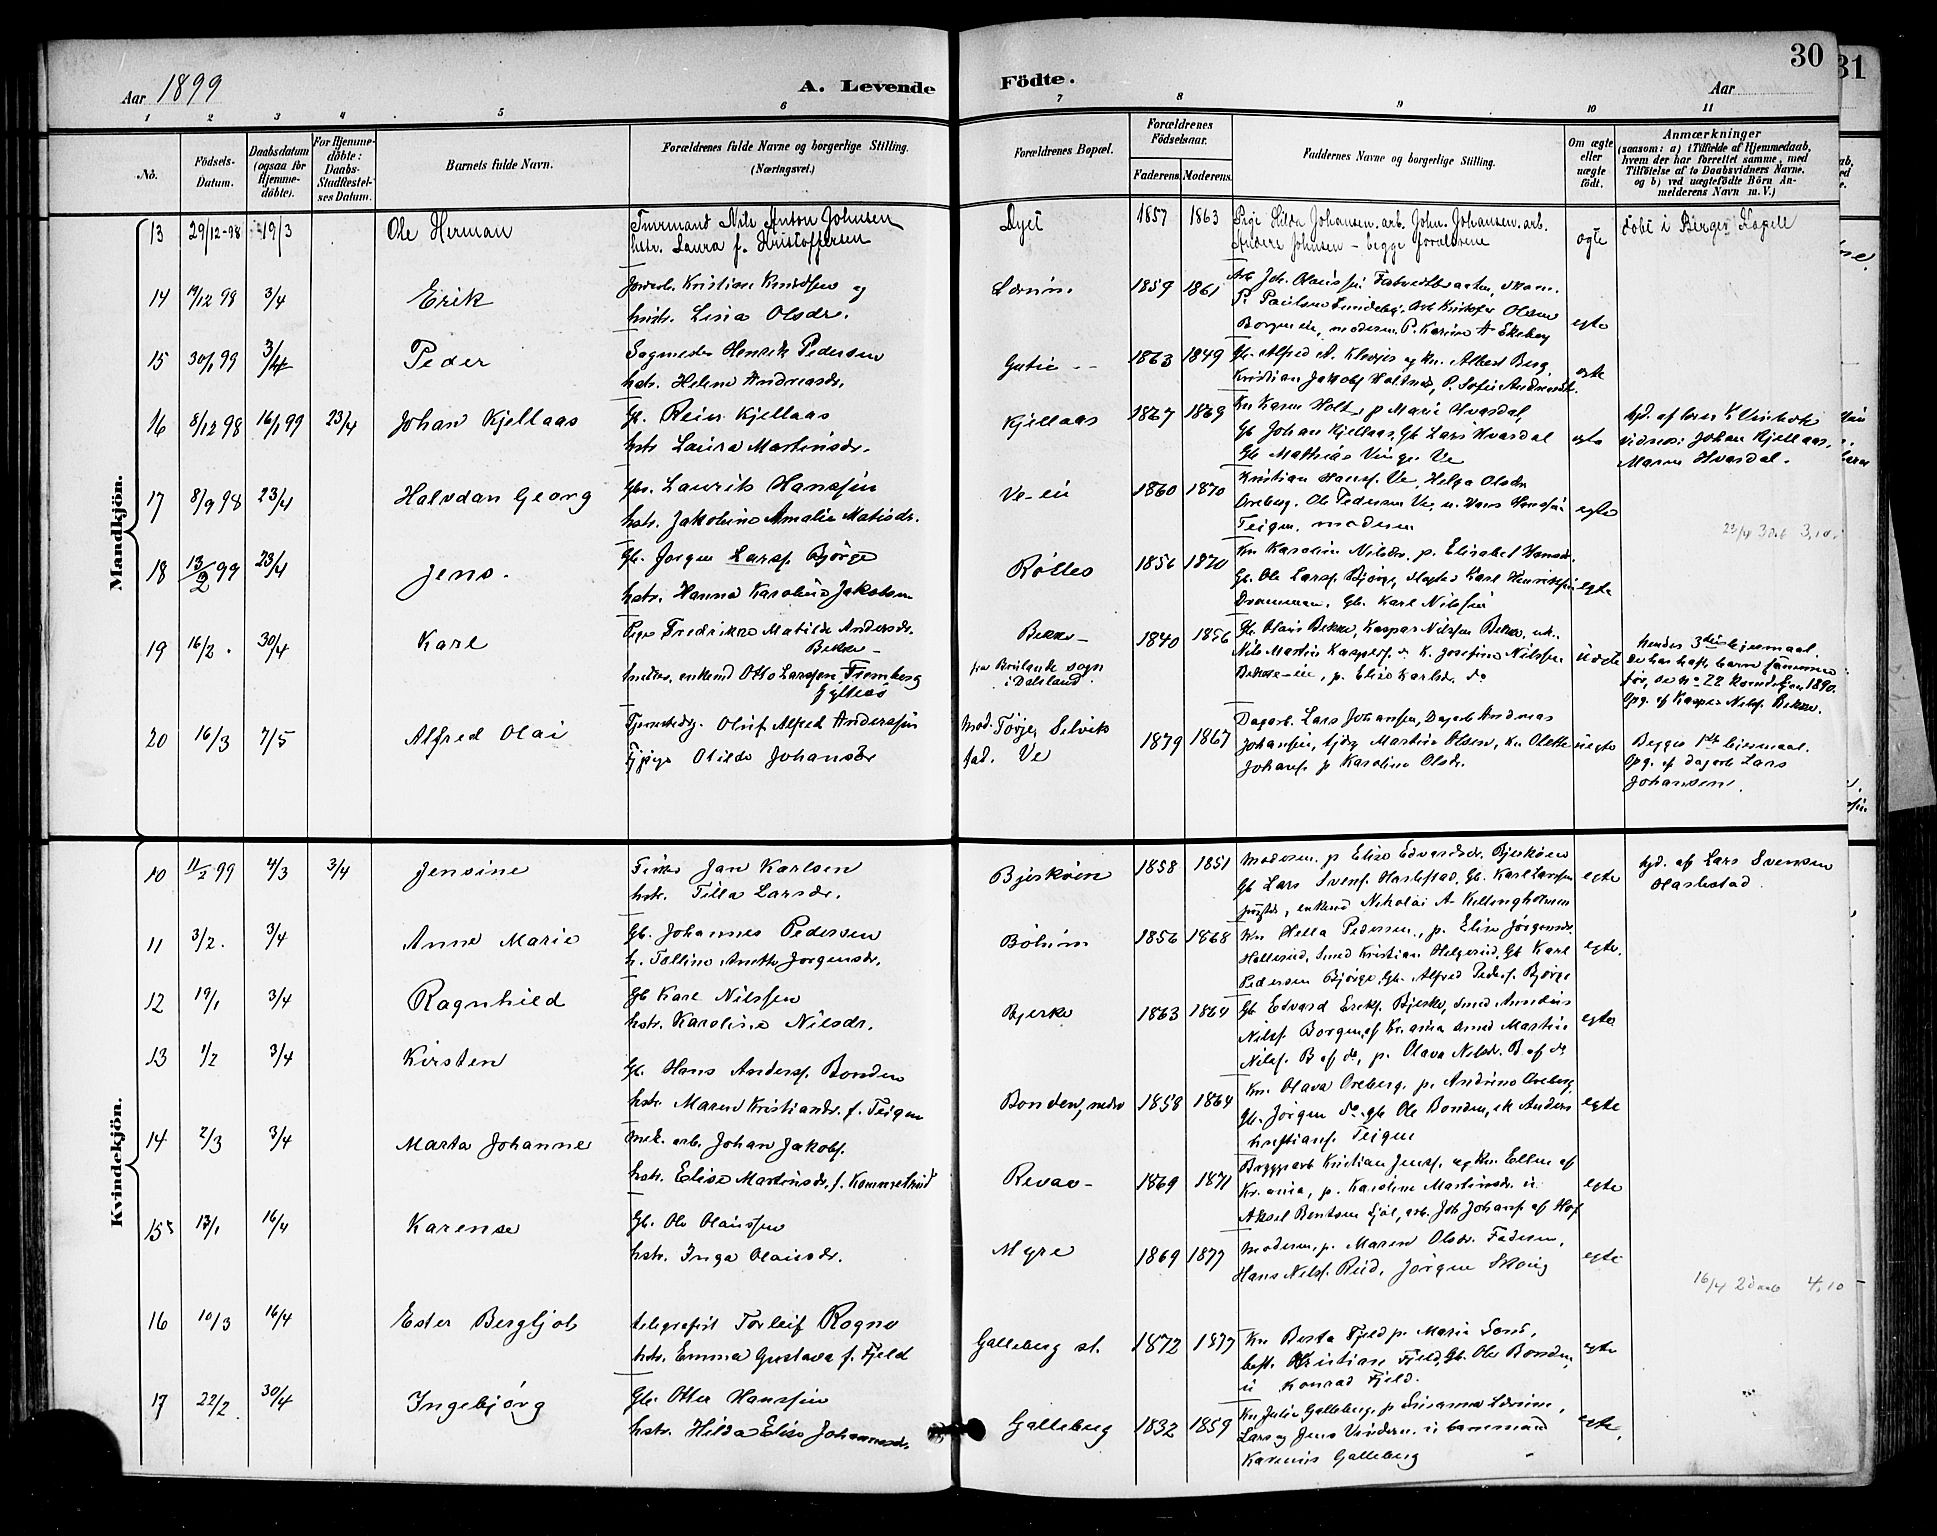 30
31
Aar 1899
A. Levende
Födte.
Aar
1 2 3 4 5 6 7 8 9 10 11
No.
Födsels-Datum.
Daabsdatum (ogsaa for Hjemmedöbte).
For Hjemmedöbte: Daabs-Stadfæstelses Datum.
Barnets fulde Navn.
Forældrenes fulde Navne og borgerlige Stilling. (Næringsvei.)
Forældrenes Bopæl.
Forældrenes Födselsaar.
Faderens. Moderens.
Faddernes Navne og borgerlige Stilling.
Om ægte eller uægte födt.
Anmærkninger
(saasom: a) i Tilfælde af Hjemmedaab, hvem der har forrettet samme, med Tilföielse af to Daabsvidners Navne, og b) ved uægtefödte Börn Anmelderens Navn m. V.)
Mandkjön.
13 29/12-98 19/3 Ole Herman
Nils Anton Johnsen
hstr. Laura f. Kristoffersen
1857 1863
Pige Hilda Johansen. arb. John. Johansen. arb.
Anders Johnsen - begge Forældrene
ægte
döbt i Berger Kapell
14 /12 98 3/4 Erik
Kristian Knudsen og
hustr. Lina Olsdr.
1859 1861
Arb. Joh. Olaussen
P. Paulsen Lundeby, Arb Kristofer Olsen
Borgen eie, moderen. P. Karine A Ekeberg
egte
15 30/1 99 3/4 Peder
Sagmester Henrik Pedersen
hstr. Helene Andreasdr.
1863 1849
Gb. Alfred A. Klevjer og kn. Albert Berg
Kristian Jakobs. Holtnes, P. Sofie Andreasdr.
egte
16 8/12 98 16/1 99 23/4 Johan Kjellaas
Gb. Rein Kjellaas
hstr Laura Martinsdr.
Kjellaas
1867 1869
Kn Karen Holt, p Marie Hvasdal,
Gb Johan Kjellaas, Gb Lars Hvasdal
Gb Mathias Vinge Ve
egte
hjd. af lærer K Virkok
vidner: Johan Kjellaas,
Maren Hvasdal.
17 8/9 98 23/4 Halvdan Georg
Gbr. Laurits Hanssen
hstr. Jakobine Amalie Matisdr.
Ve-eie
1860 1870
Kristian Hansf. Ve, Helga Olsdr
Oreberg. Ole Pedersen Ve, u. Hans Hanssen
Teigen, moderen
egte
23/4 3 dåb 3,10
18 13/2 99 23/4 Jens.
Gb. Jorgen Larsf. Bjørge
hstr. Hanna Karoline Jakobsen
Rölles
1856 1870
Kn Karoline Nilsdr. p. Elisabet Hansdr.
Gb. Ole Larsf. Bjørge, Karl Henriksen
Drammen, Gb. Karl Nilssen
egte
19 16/2. 30/4 Karl
Pige Fredrikke Matilde Andersdr.
Bekke-
enkemd Otto Larssen Fromberg
Bekke-
fra Brålanda sogn
i Dalsland.
1840 1856
Gb. Olaus Bekke, Kaspar Nilssen Bekke, u.k.
Nils Martin Kaspersf. do K. Josefine Nilssen
Bekke-eie, p. Elise Karlsdr. do
uægte
hendes 3die leiermaal.
De har havt barn sammen
för, se No 22 kvindekjön 1890.
Opg. af Kasper Nilsf. Bekke.
20 16/3 7/5 Alfred Olai
Tjenestedrg. Oluf Alfred Anderssen
Tjpige Olilde Johansdr
Mod. Torje Selvik
fad. Ve
1879 1867
Dagarb. Lars Johansen, Dagarb Andreas
Johansen, tjdrg Martin Olsen, Kn Olette
Johansf. p Karoline Olsdr.
uegte
Begges 1ste leiermaal.
Opg. af dagarb Lars
Johansen.
Kvindekjön.
10 11/2 99 4/3 3/4 Jensine
Jan Karlsen
hstr. Tilla Larsdr.
Bjerköen
1858 1851
Moderen. p Elise Edvardsdr. Bjerköen
Gb Lars Svensf. Hasle­stad, Gb. Karl Larssen
enkemd Nikolai A Killingholmen
egte
hjd. af Lars Svensen
Haslestad.
11 3/2. 3/4 Anne Marie
Gb. Johannes Pedersen
h. Tolline Anette Jorgensdr.
1856 1868
Kn Hella Pedersen., p. Elise Jörgensdr.
Hallerud, Smed Kristian Helgerud, Gb Karl
Pedersen Bjørge, Gb. Alfred Peders. Bjørge
egte.
12 19/1 3/4 Ragnhild
Gb Karl Nilssen
hstr. Karoline Nilsdr.
Bjerke
1863 1864
Gb Edvard Eriksf. Bjerke, smed Anders
Nilsf. Borgen, af Kr.ania smed Martin
Nilsf. B af do, p. Olava Nilsdr. B af do
egte
13 1/2 3/4 Kirsten
Gb. Hans Andersf. Bonden
hstr. Maren Kristiansdr. f. Teigen
Bonden, nedre
1858 1864
Kn. Olava Oreberg. p. Andrine Oreberg
Gb. Jörgen do. gb Ole Bonden, uk Anders
Kristiansf. Teigen
egte
14 2/3 3/4 Marta Johanne
Mek. arb. Johan Jakobsf.
hstr. Elise Martinsdr. f. Kommestrud
Revaa-
1869 1871
Bryggarb Kristian Jensf. og Kn. Ellen af
Kr.ania, p. Karoline Martinsdr u
Aksel Bentsen arb. Joh Johansf. af Hof
egte
15 13/1 16/4 Karense
Gb. Ole Olaussen
hstr. Inga Olausdr.
Myre
1869 1877
Moderen, p. Maren Olsdr. Fadesen,
Hans Nilsf. Rud, Jörgen Skoug
egte
16/4 2 daab 4,10
16 10/3 16/4 Ester Bergljot
telegrafist Torleif Rogne
hstr. Emma Gustava f. Fjeld
Galleberg st.
1872 1877
Kn. Berta Fjeld p. Marie Sand,
best. Kristian Fjeld, Gb. Ole Bonden,
u Konrad Fjeld.
egte
17 22/2 30/4 Ingebjörg
Gb. Otter Hanssen
hstr. Hilda Elise Johannesdr.
Galleberg
1832 1859
Kn Julie Galleberg, p Susanna
Lars og Jens Vindern. u
Karenius Galleberg
egte.